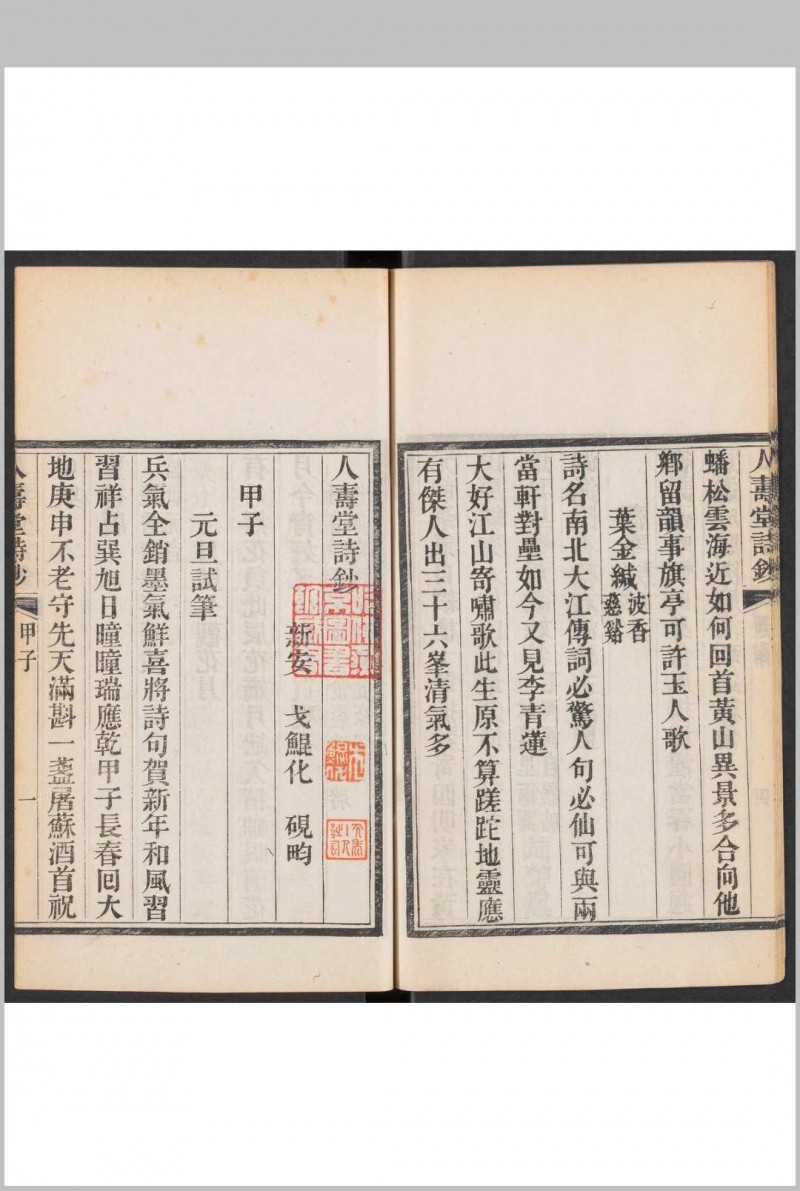 人壽堂詩鈔
蟠松雲海近如何回首黃山異景多合向他
鄉留韻事旗亭可許玉人歌
葉金緘 波香 慈谿
詩名南北大江傳詞必驚人句必仙可與兩
當軒對壘如今又見李青蓮
大好江山寄嘯歌此生原不算蹉跎地靈應
有傑人出三十六峯清氣多
人壽堂詩鈔
新安 戈鯤化 硯畇
甲子
元旦試筆
兵氣全銷墨氣鮮喜將詩句賀新年和風習
習祥占巽旭日曈曈瑞應乾甲子長春回大
地庚申不老守先天滿斟一盞屠蘇酒首祝
人壽堂詩鈔 甲子 一